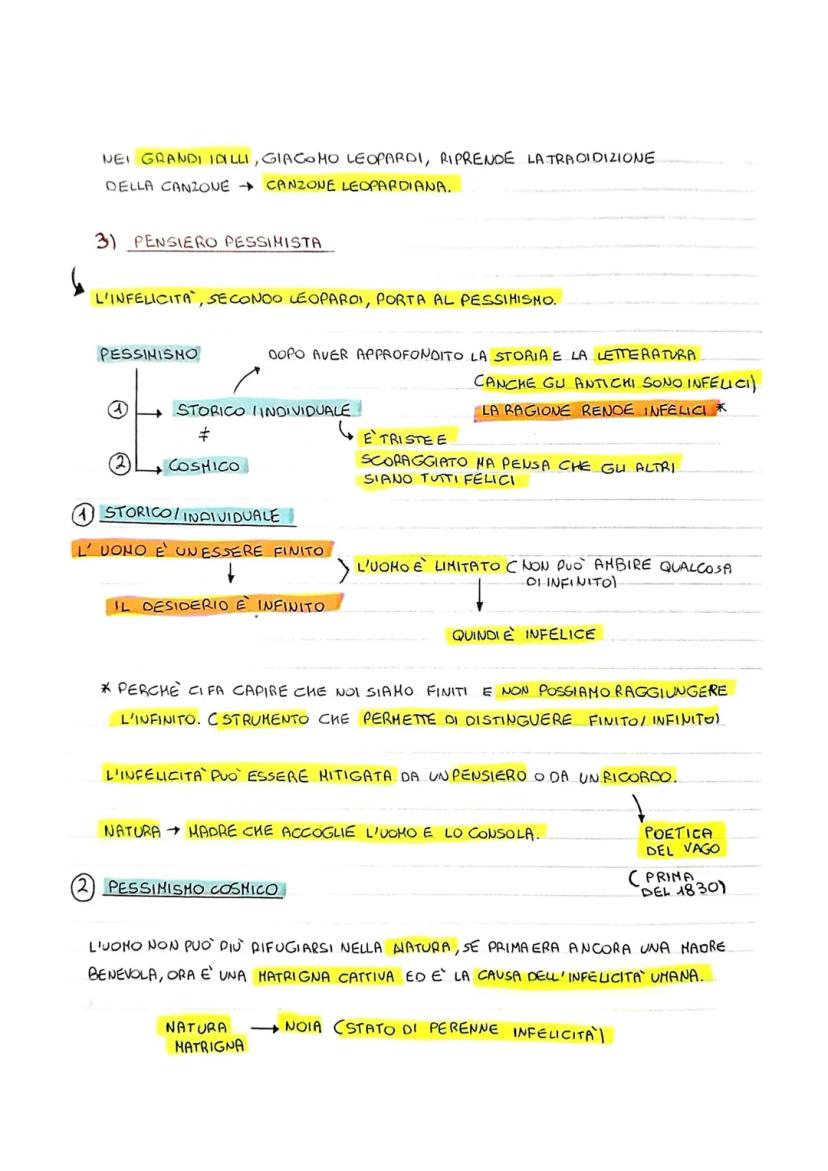 NEI GRANDI IDILLI, GIACOMO LEOPARDI, RIPRENDE LA TRADIDIZIONE
DELLA CANZONE → CANZONE LEOPARDIANA.
3) PENSIERO PESSIMISTA
L'INFELICITÀ, SECONDO LEOPARDI, PORTA AL PESSIMISMO.
PESSIMISMO
DOPO AVER APPROFONDITO LA STORIA E LA LETTERATURA
(ANCHE GLI ANTICHI SONO INFELICI)
① → STORICO / INDIVIDUALE
LA RAGIONE RENDE INFELICI *
≠
È TRISTE E
② → COSMICO
SCORAGGIATO MA PENSA CHE GLI ALTRI
SIANO TUTTI FELICI
① STORICO / INDIVIDUALE
L'UOMO È UN ESSERE FINITO
L'UOMO È LIMITATO (NON PUÒ AMBIRE QUALCOSA
DI INFINITO)
IL DESIDERIO È INFINITO
QUINDI È INFELICE
* PERCHÈ CI FA CAPIRE CHE NOI SIAMO FINITI E NON POSSIAMO RAGGIUNGERE
L'INFINITO. (STRUMENTO CHE PERMETTE DI DISTINGUERE FINITO/INFINITO)
L'INFELICITÀ PUÒ ESSERE MITIGATA DA UN PENSIERO O DA UN RICORDO.
NATURA → MADRE CHE ACCOGLIE L'UOMO E LO CONSOLA.
POETICA
DEL VAGO
(PRIMA
DEL 1830)
② PESSIMISMO COSMICO
L'UOMO NON PUÒ PIÙ RIFUGIARSI NELLA NATURA, SE PRIMA ERA ANCORA UNA MADRE
BENEVOLA, ORA È UNA MATRIGNA CATTIVA ED È LA CAUSA DELL'INFELICITÀ UMANA.
NATURA → NOIA (STATO DI PERENNE INFELICITÀ)
MATRIGNA